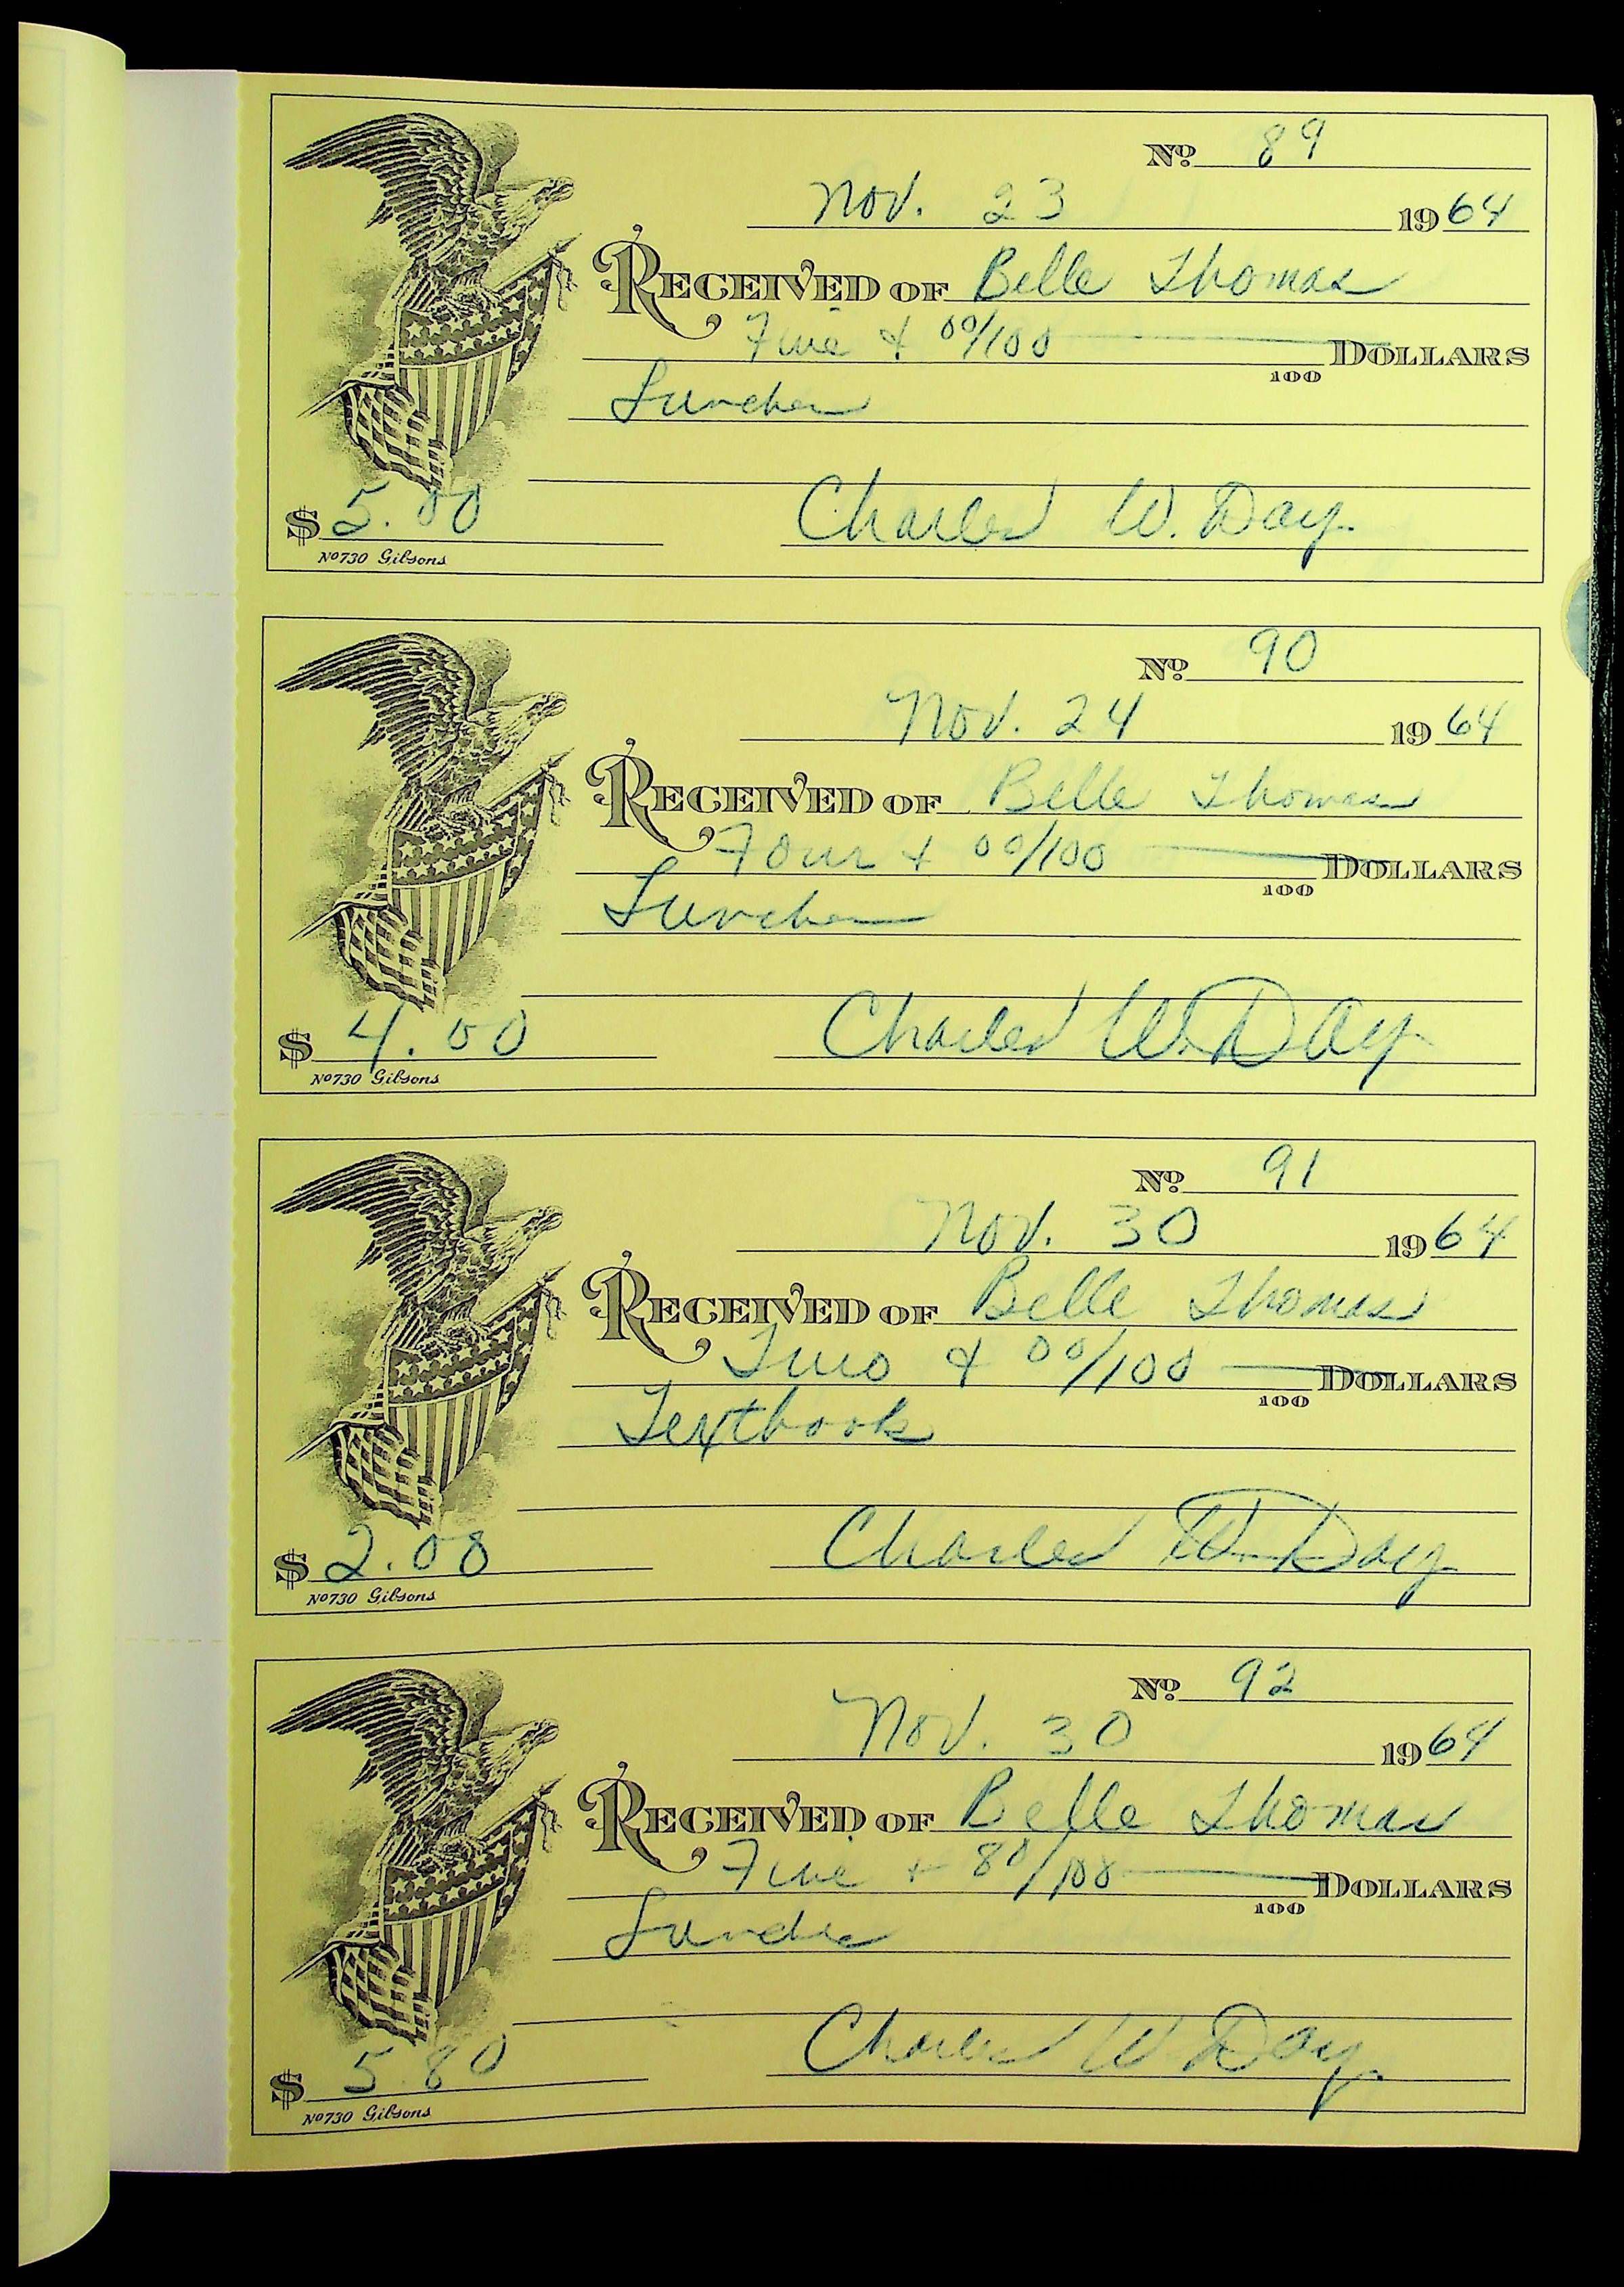 Nº 89
Nov. 23 1964
RECEIVED OF Belle Thomas
Five & 00/100 DOLLARS
100
Lunches
$ 5.00 Charles W. Day
Nº730 Gibsons
Nº 90
Nov. 24 1964
RECEIVED OF Belle Thomas
Four + 00/100 DOLLARS
100
Lunches
$ 4.00 Charles W. Day
Nº730 Gibsons
Nº 91
Nov. 30 1964
RECEIVED OF Belle Thomas
Two & 00/100 DOLLARS
100
Textbook
$ 2.00 Charles W. Day
Nº730 Gibsons
Nº 92
Nov. 30 1964
RECEIVED OF Belle Thomas
Five + 80/100 DOLLARS
100
Lunches
$ 5.80 Charles W. Day
Nº730 Gibsons